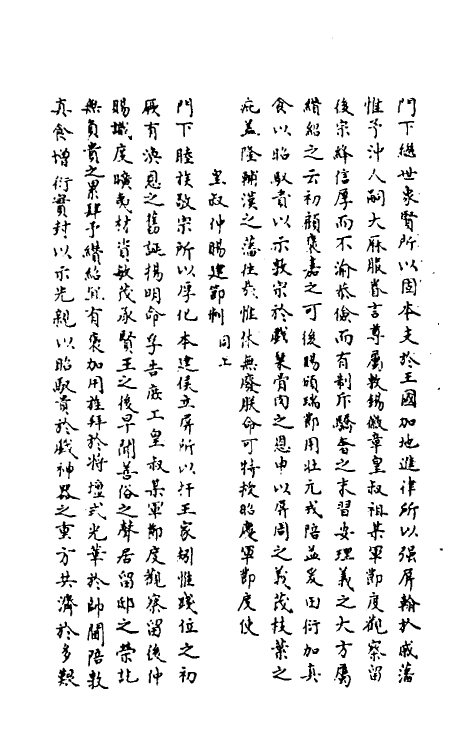 門下繼世象賢所以固本支於王國加地進律所以强屏翰於戚藩
惟予沖人嗣大厤服眷言尊屬敷錫徽章皇叔祖某軍節度觀察留
後宗絳信厚而不渝恭儉而有制斥驕奢之末習安理義之大方屬
纘紹之云初顧褒嘉之可後賜頒瑞節用壯元戎陪益爰田衍加真
食以昭馭貴以示敦宗於戲篤骨肉之恩申以屏周之義茂枝葉之
庇益隆輔漢之藩往哉惟休無廢朕命可特授昭慶軍節度使
皇叔仲賜建節制 同上
門下睦族敬宗所以厚化本建侯立屏所以扞王家矧惟踐位之初
厥有渙恩之舊誕揚明命孚告庶工皇叔某軍節度觀察留後仲
賜識度曠夷材資敏茂承賢王之後早聞善俗之聲居留邸之榮訖
無負貴之累肆予纘紹宜有褒加用旌拜於將壇式光華於帥閫陪敦
真食增衍實封以示光親以昭馭貴於戲神器之重方共濟於多艱